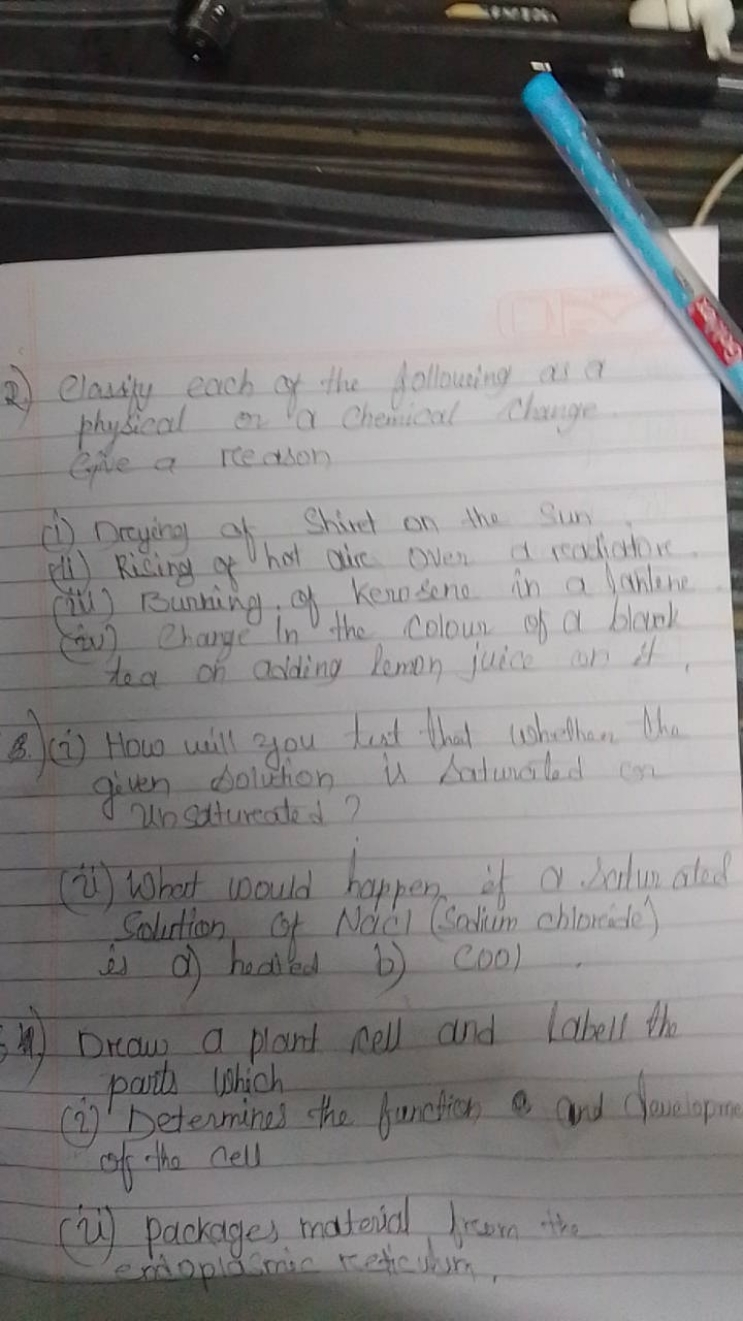 2) Classify each of the following as a
physical or a Chemical Change.
Give a reason
(i) Dreying of Shirt on the Sun.
(ii) Rising of hot airc over a readiatore.
(iii) Burning of Kerosene in a lantene.
(iv) Change In the Colour of a black
tea on adding lemon juice on it.
3.) (i) How will you test that whether the
given solution is saturated or
Unsatureated?
(ii) What would happen if a saturated
Solution of Nacl (Sodium chloreide)
is a) heated b) Cool.
4) Dreaw a plant cell and Labell the
parts which
(i) Determines the function and developme
of the cell
(ii) packages material from the
endoplasmic reticulum.